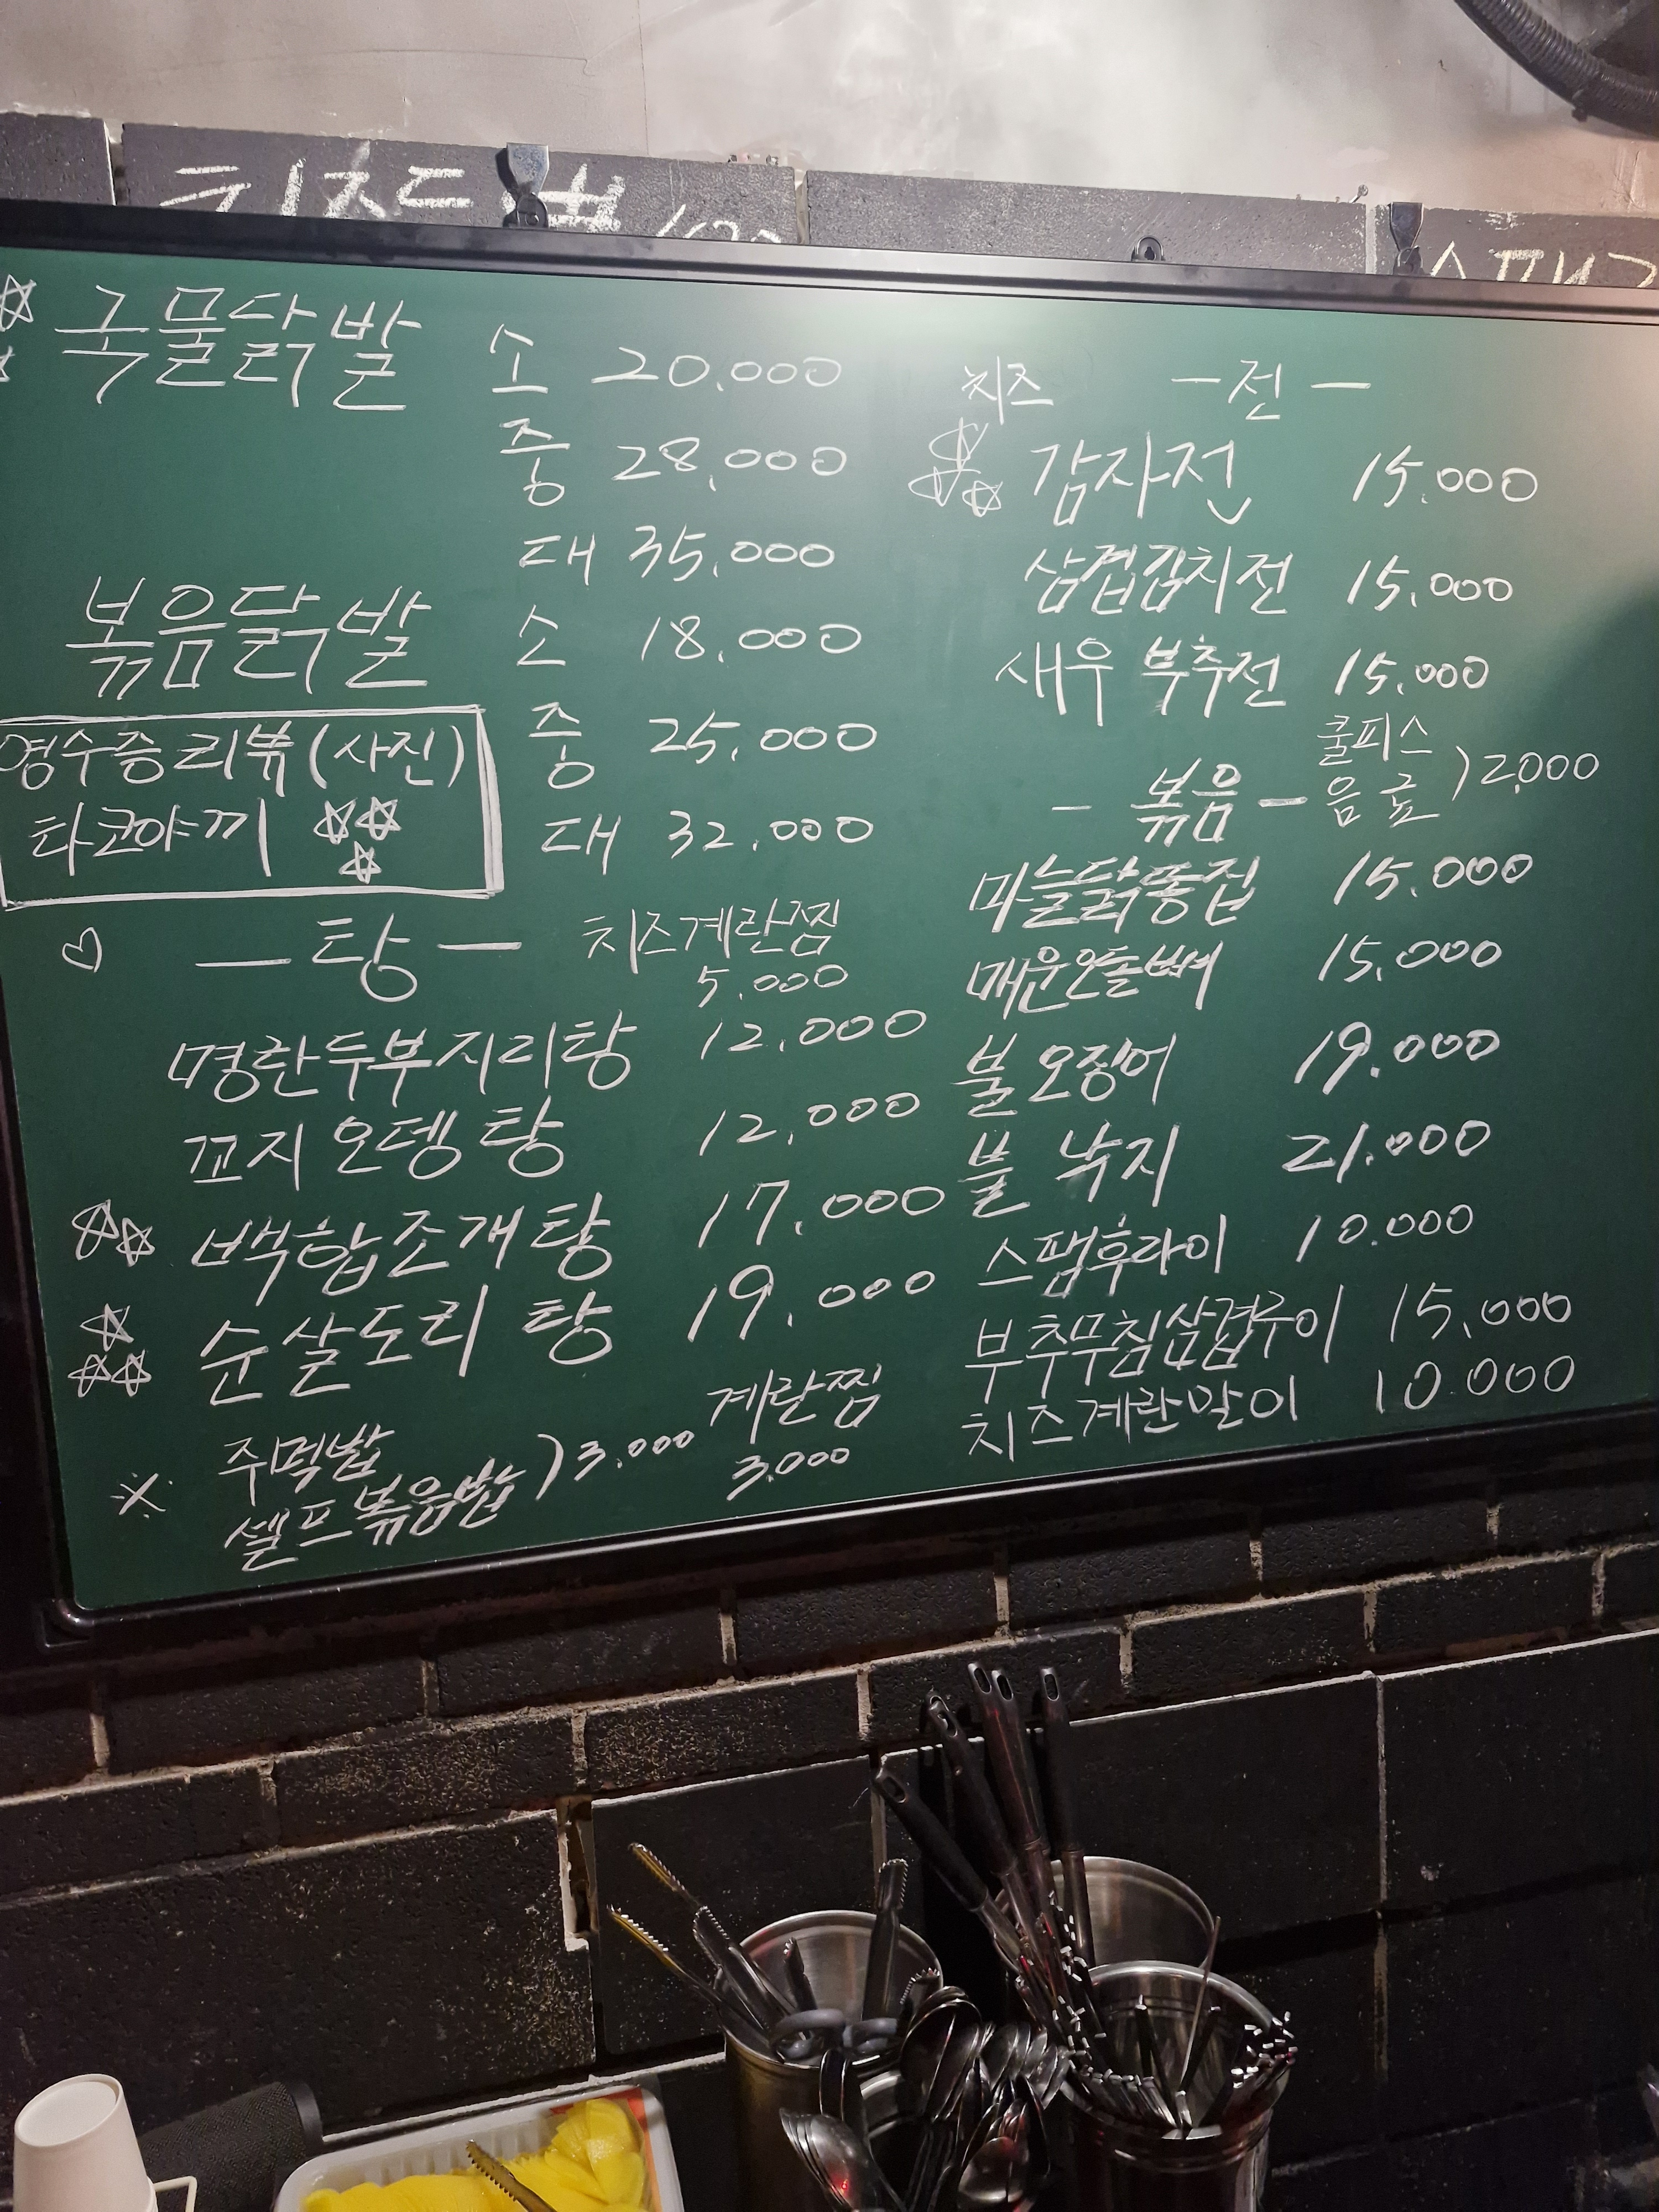 국물닭발 소 20.000
중 28.000
대 35.000
볶음닭발 소 18.000
중 25.000
대 32.000
영수증리뷰(사진)
타코야끼
-탕- 치즈계란찜
5.000
명란두부지리탕 12.000
꼬지오뎅탕 12.000
백합조개탕 17.000
순살도리탕 19.000
계란찜
3.000
주먹밥
셀프볶음밥 )3.000
치즈 -전-
감자전 15.000
삼겹김치전 15.000
새우 부추전 15.000
쿨피스
음료 )2.000
- 볶음 -
마늘닭똥집 15.000
매운오돌뼈 15.000
불오징어 19.000
불 낙지 21.000
스팸후라이 10.000
부추무침삼겹구이 15.000
치즈계란말이 10.000